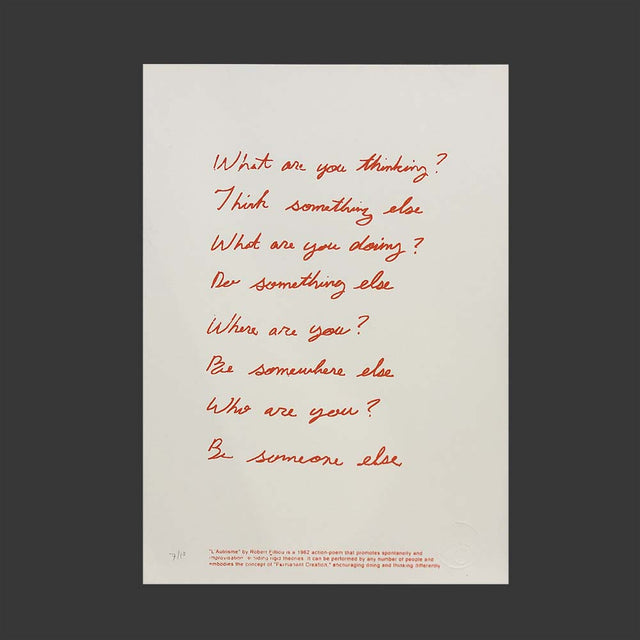 What are you thinking?
Think something else
What are you doing?
Do something else
Where are you?
Be somewhere else
Who are you?
Be someone else
7/10
"L'Autrisme" by Robert Filliou is a 1962 action-poem that promotes spontaneity and
improvisation rigid theories. It can be performed by any number of people and
embodies the concept of "Permanent Creation," encouraging doing and thinking differently